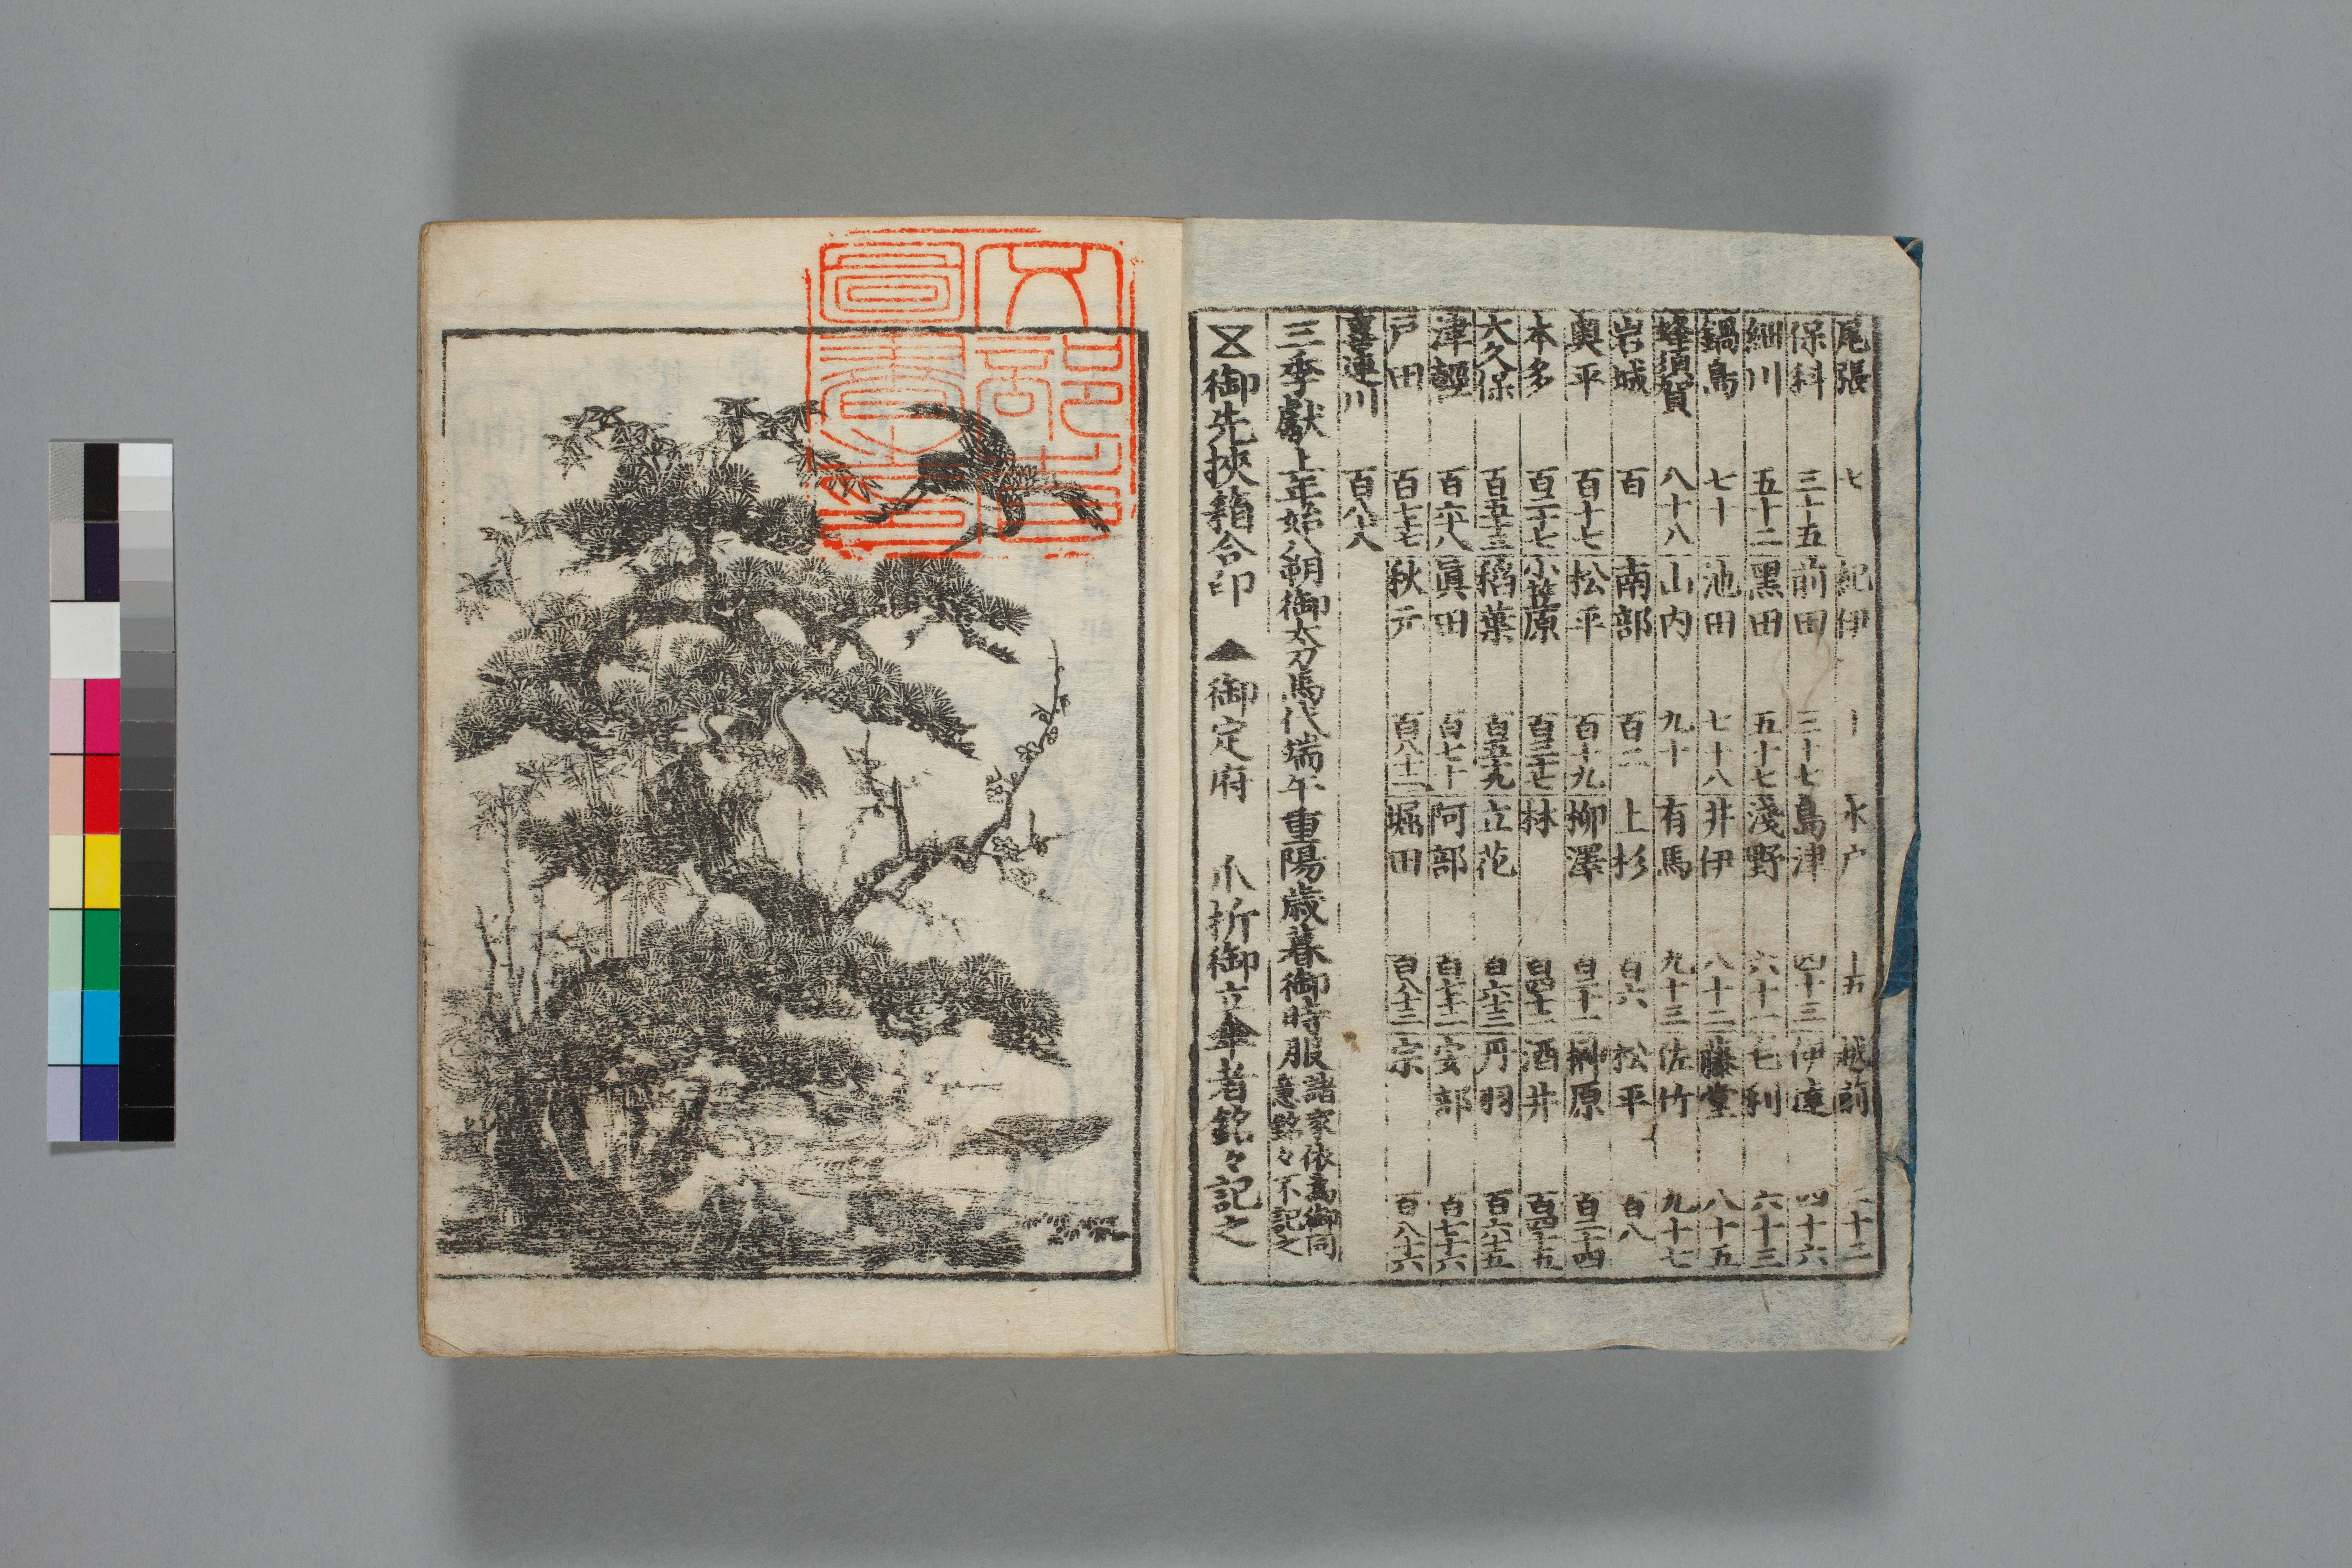 尾張 七 紀伊 十 水戸 十五 越前 二十二
保科 三十五 前田 三十七 島津 四十三 伊達 四十六
細川 五十二 黒田 五十七 淺野 六十一 毛利 六十三
鍋島 七十 池田 七十八 井伊 八十二 藤堂 八十五
蜂須賀 八十八 山内 九十 有馬 九十三 佐竹 九十七
岩城 百 南部 百二 上杉 百六 松平 百八
奥平 百十七 松平 百十九 柳澤 百二十一 榊原 百二十四
本多 百二十七 小笠原 百三十七 林 百四十一 酒井 百四十五
大久保 百五十三 稲葉 百五十九 立花 百六十三 丹羽 百六十五
津輕 百六十八 眞田 百七十 阿部 百七十二 安部 百七十六
戸田 百七十七 秋元 百八十二 堀田 百八十三 宗 百八十六
喜連川 百八十八
三季獻上年始八朔御太刀馬代端午重陽歳暮御時服諸家依為御同意銘々不記之
御先挾箱合印 ▲御定府 爪折御立傘者銘々記之
文部省圖書印